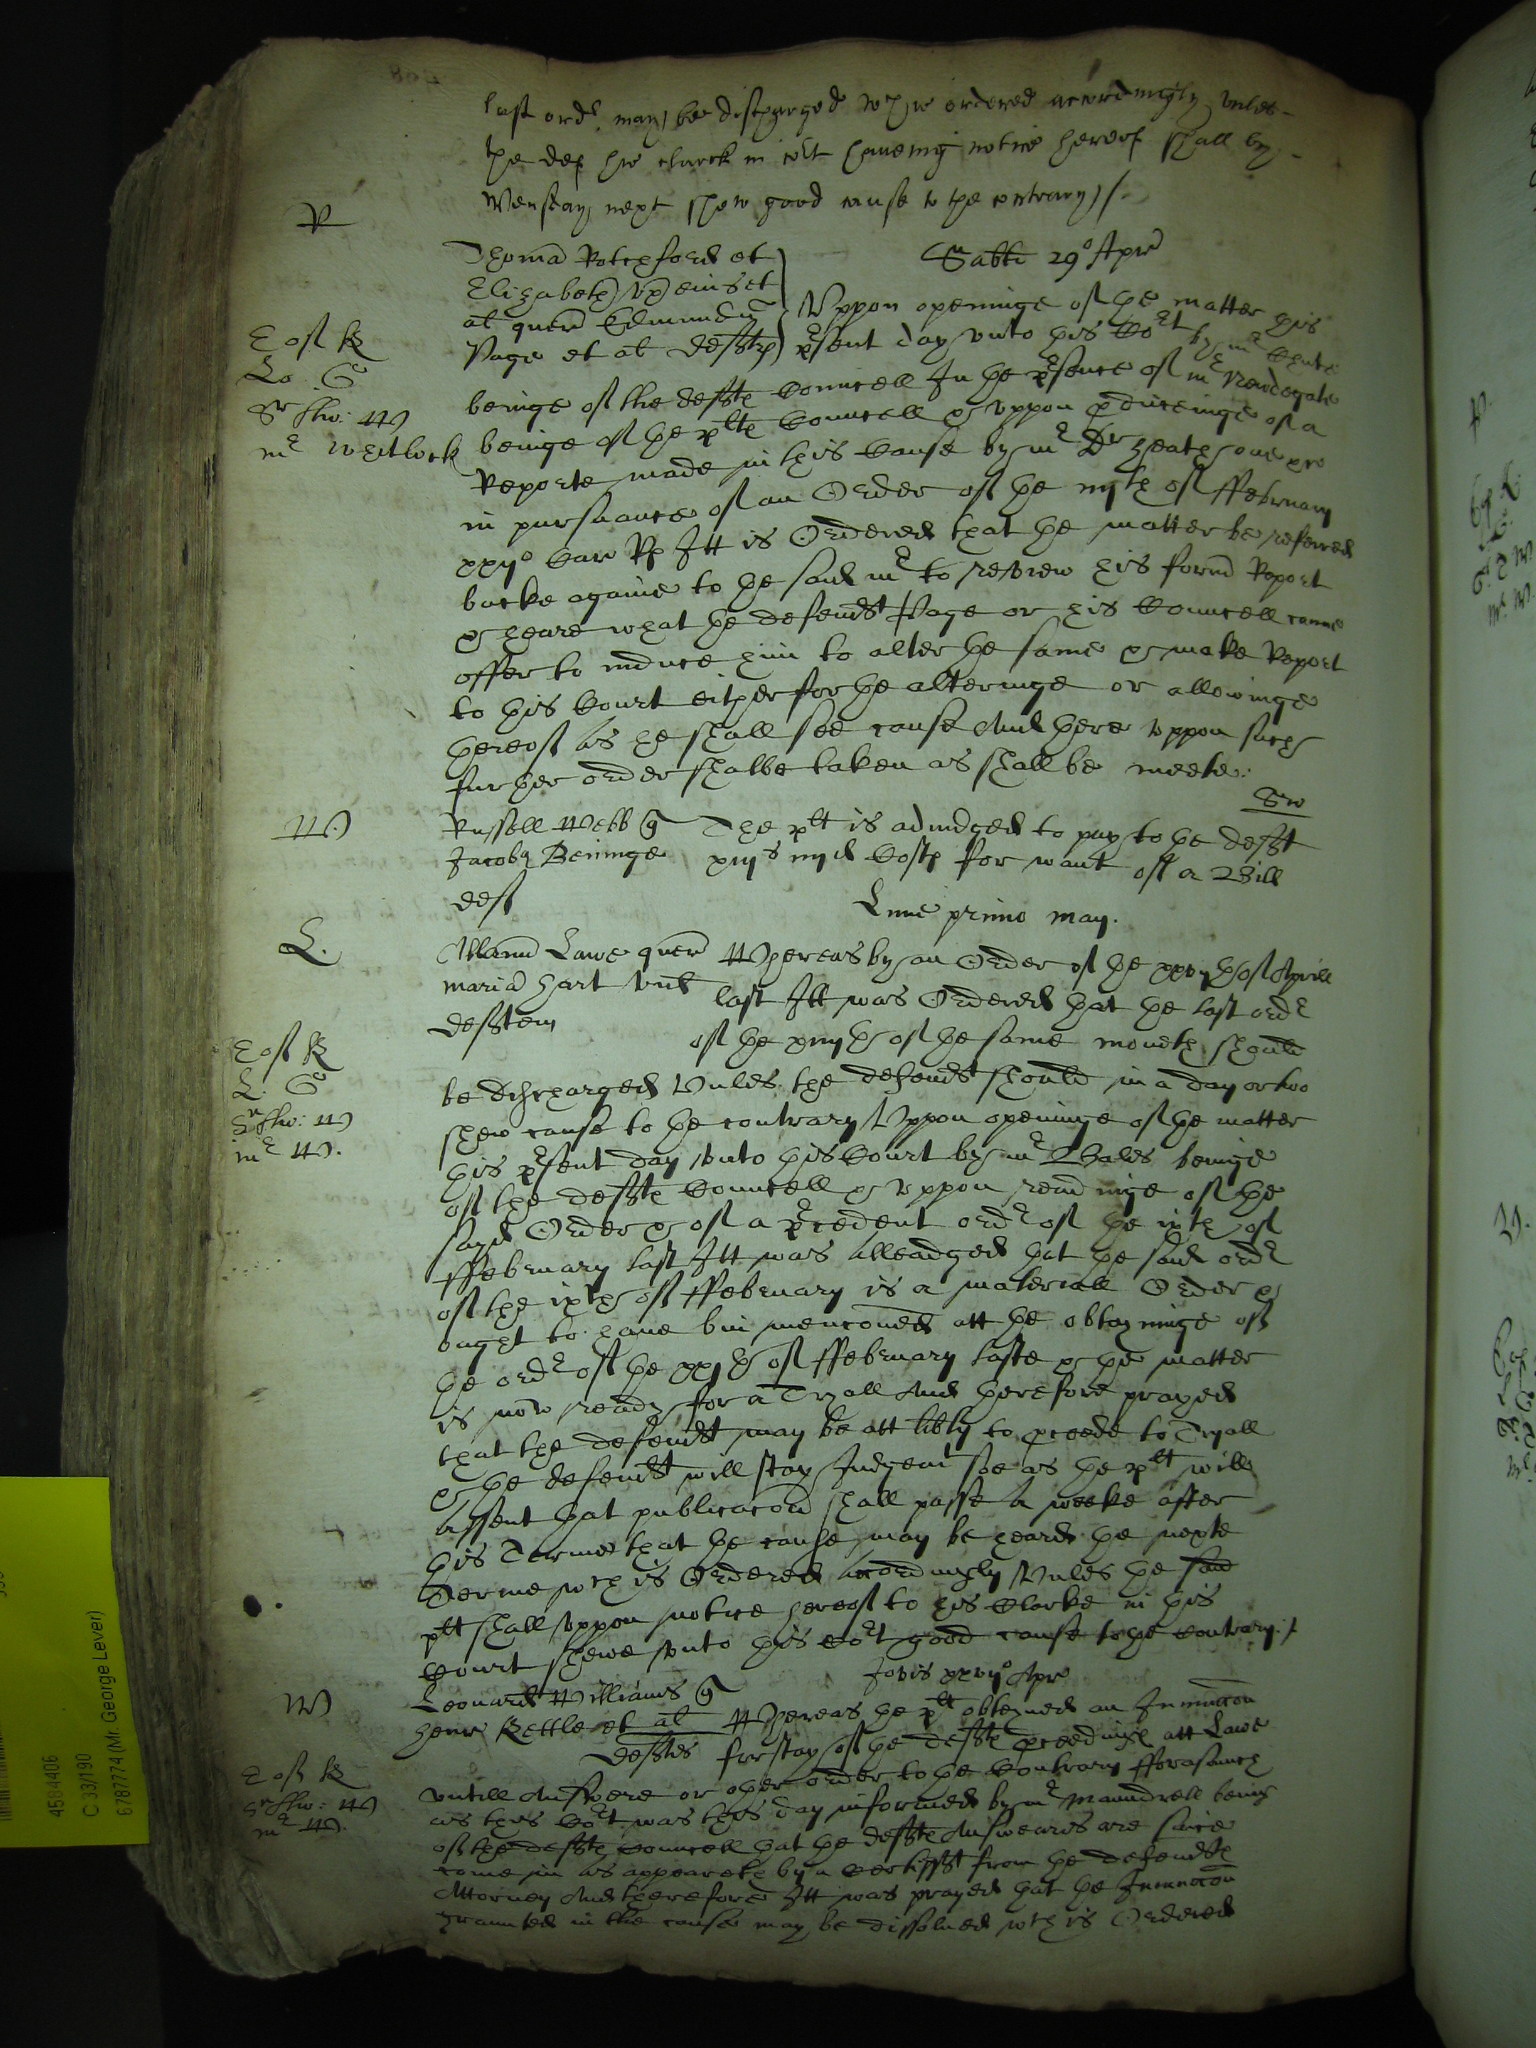 last ordr may be discharged wch is ordered accordingly unles
the def his clarck in cort haveing notice hereof shall by
Wensday next shew good cause to the contrary /.
R
Sabti 29o Apr
Thoma Rotchford et
Elizabeth ux eius et
al quer Edmundu
Page et al defts
Uppon openinge of the matter this
prsent day unto this Cort by mr
E of K
Lo: G
Sr Hu: W
mr Whitlock
beinge of the defts Councell In the prsence of mr Newdegate
beinge of the plts Councell & uppon producinge of a
Reporte made in this Cause by mr Dr
in pursuance of an Order of the iiijth of ffebruary
xxijo Car Rs Itt is Ordered that the matter be referred
backe againe to the said mr to review his formr Report
& heare what the defendt Page or his Councell canne
offer to induce him to alter the same & make Report
to this Court either for the alteringe or allowinge
thereof as he shall see cause And thereuppon such
further order shalbe taken as shall be meete.
W
Russell Webb q
Jacobu Beninge
def
The plt is adiudged to pay to the deft
xiijs iiijd Costs for want of a Bill
Lune primo may.
L.
Allanu Lawe quer
maria Hart vid
deftem
Whereas by an Order of the xxvijth of Aprill
last Itt was Ordered that the last ordr
of the xiijth of the same moneth should
E of K
L: G
Sr Hu: W
mr W.
be discharged Unles the defendt should in a day or two
shew cause to the contrary Uppon openinge of the matter
this prsent day unto this Court by mr Bales beinge
of the defts Councell & uppon readinge of the
sayd Order & of a prcedent ordr of the ixth of
ffebruary last Itt was alleadged that the said ordr
of the ixth of ffebruary is a materiall Order &
ought to have bin menconed att the obtayninge of
the ordr of the xxjth of ffebruary laste & the matter
is now ready for a Tryall And therefore prayed
that the defendt may be att libty to pceede to Tryall
& the defendt will stay Judgemt soe as the plt will
assent that publicacon shall passe a weeke after
this Terme that the cause may be heard the nexte
Terme wch is Ordered accordingly Unles the said
plt shall uppon notice hereof to his Clarke in this
Court shewe unto this Cort good cause to the contrary./
W
Jovis xxvijo Apr
Leonard Williams q
Henr Kettle et al
deftes
Whereas the plt obteyned an Iniunccon
for stay of the defts pceedings att Lawe
E of K
Sr Hu: W
mr W.
untill Answere or other order to the Contrary fforasmuch
as this Cort was this day informed by mr Maundrell being
of the defts Councell that the defts Answeares are since
come in as appeareth by a Certifft from the defendts
Attorney And therefore Itt was prayed that the Iniunccon
graunted in the cause may be dissolved wch is Ordered
4584406
C 33/190
6787774 (Mr. George Lever)